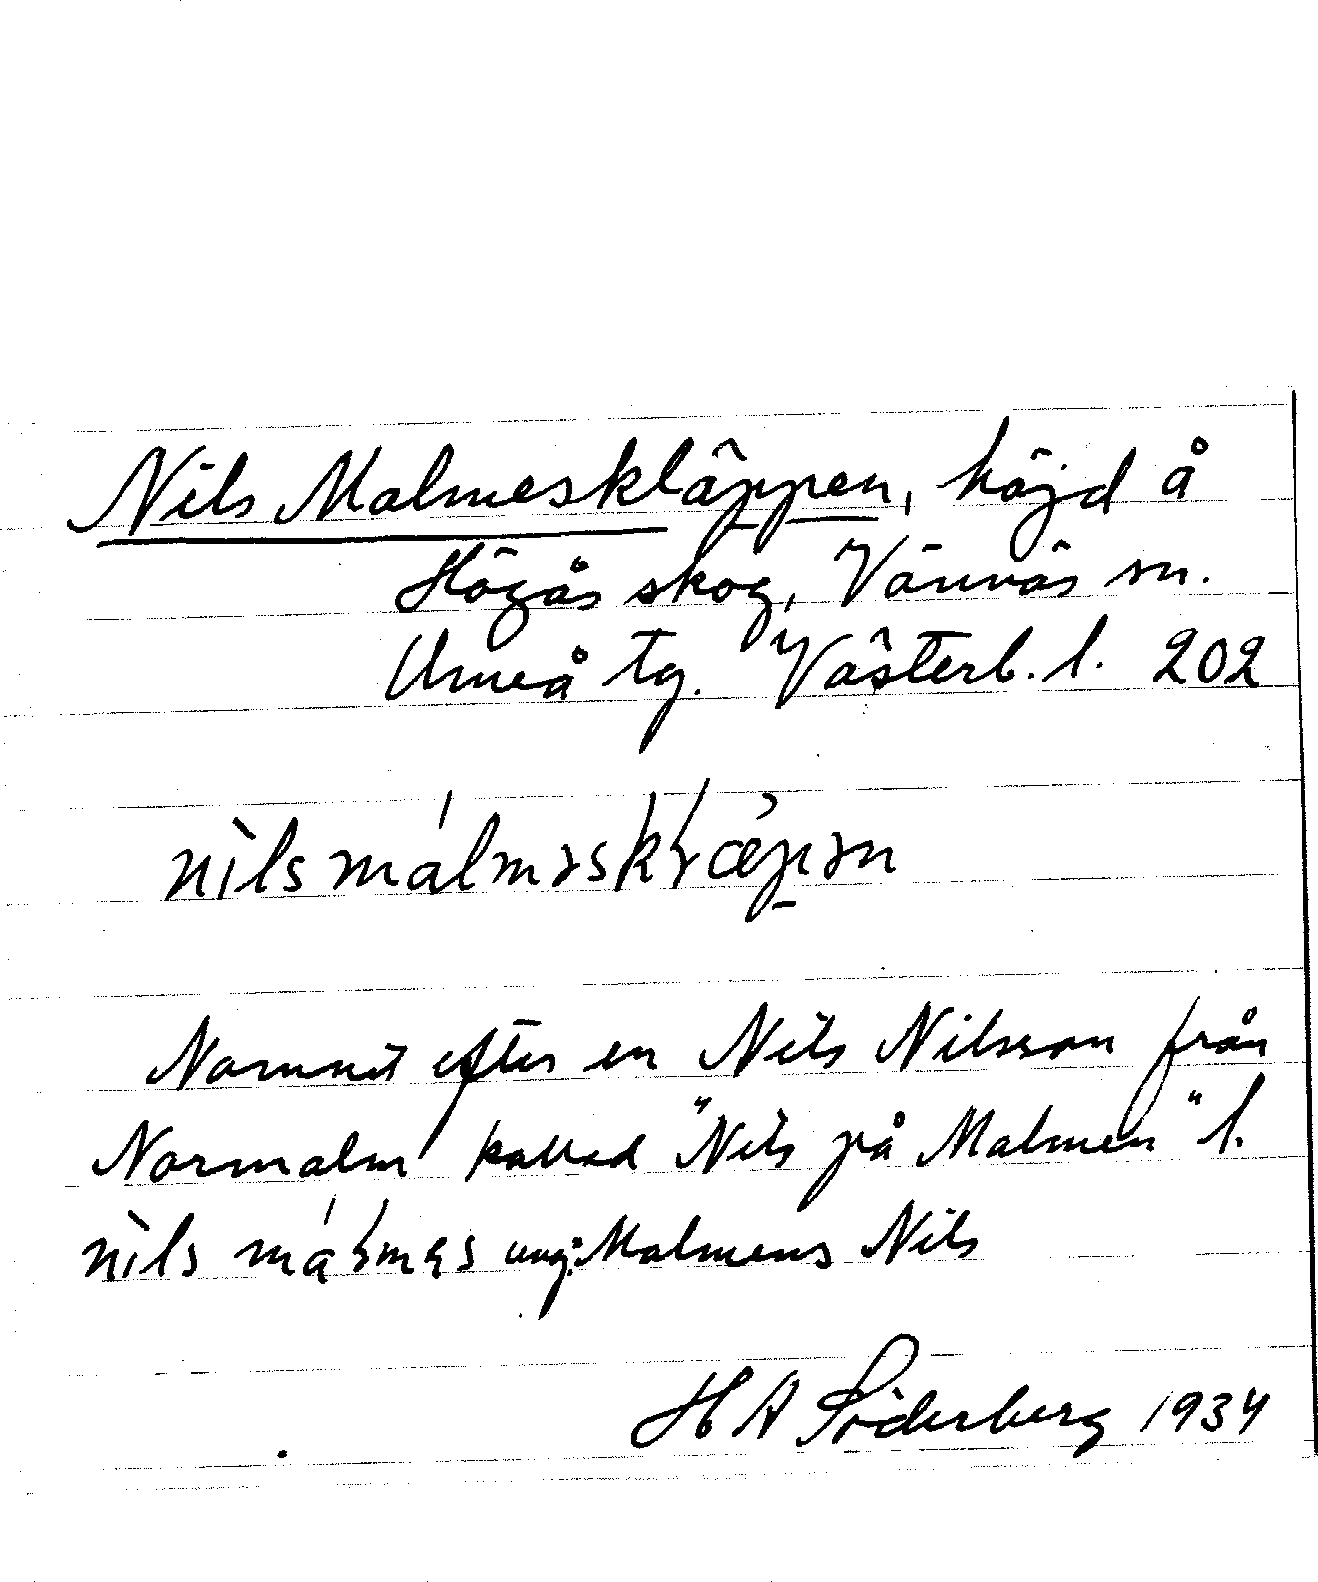 Nils Malmeskläppen, höjd å
Högås skog, Vännäs sn.
Umeå tg. Västerb. l. 202
nìls málməskɽæ̀pən
Namnet efter en Nils Nilsson från
Normalm kallad "Nils på Malmen" l.
nìls máɽməs ung. Malmens Nils
H A Söderberg 1934